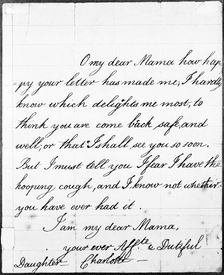 O my dear Mama how hap
py your letter has made me, I hardly
know which delights me most, to
think you are come back safe, and
well, or that I shall see you so soon.
But I must tell you I fear I have the
hooping cough, and I know not whether
you have ever had it.
I am my dear Mama,
your ever Affte & Dutiful
Daughter Charlotte